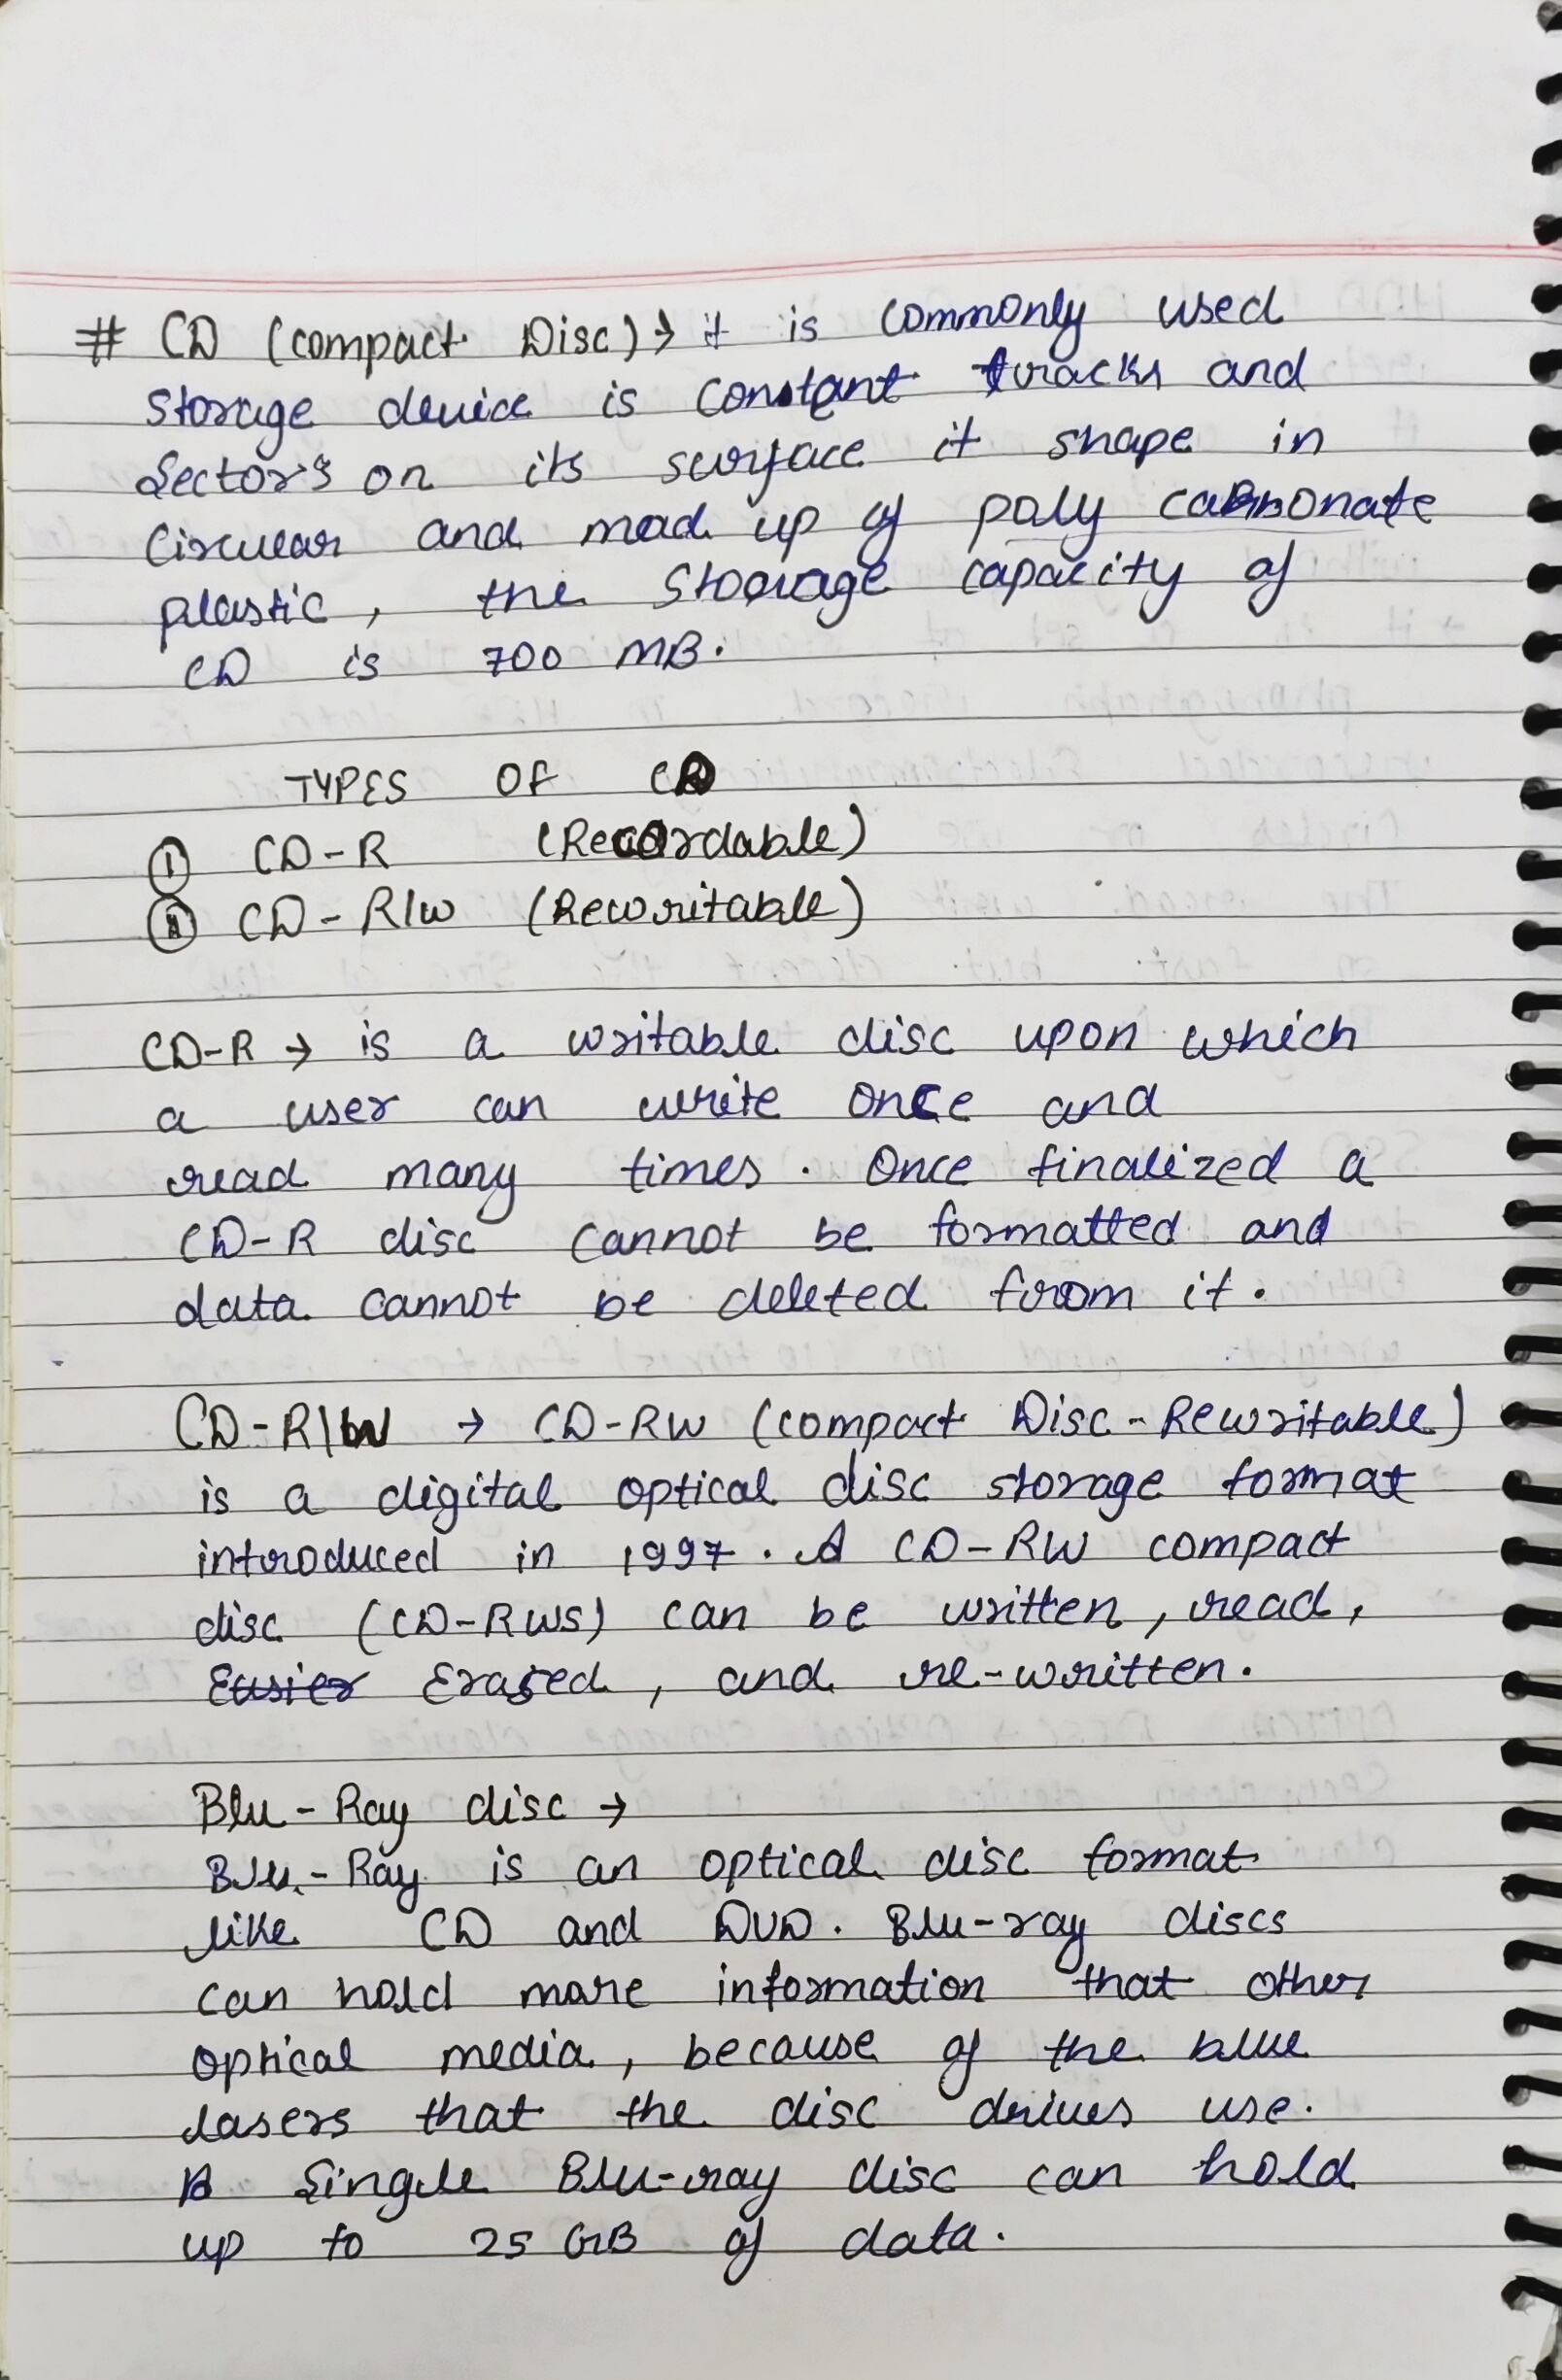 # CD (compact Disc) → it is commonly used
Storage device is constant tracks and
Sectors on its surface it shape in
Circular and mad up of poly carbonate
plastic, the Storage capacity of
CD is 700 MB.
TYPES OF CD
① CD-R (Recordable)
② CD-R/W (Rewritable)
CD-R → is a writable disc upon which
a user can write once and
read many times. Once finalized a
CD-R disc cannot be formatted and
data cannot be deleted from it.
CD-R/W → CD-RW (compact Disc-Rewritable)
is a digital optical disc storage format
introduced in 1997. A CD-RW compact
disc (CD-RWS) can be written, read,
Easier Erased, and re-written.
Blu-Ray disc →
Blu-Ray is an optical disc format
like CD and DVD. Blu-ray discs
can hold more information that other
optical media, because of the blue
lasers that the disc drives use.
A Single Blu-ray disc can hold
up to 25 GB of data.